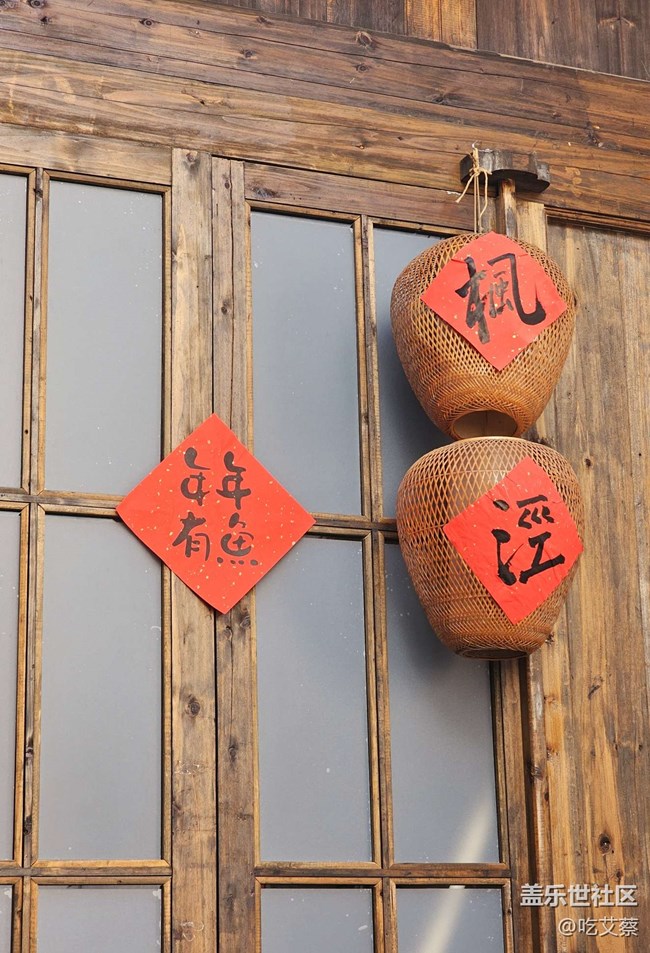 楓
涇
年年
有魚
盖乐世社区
@吃艾蔡